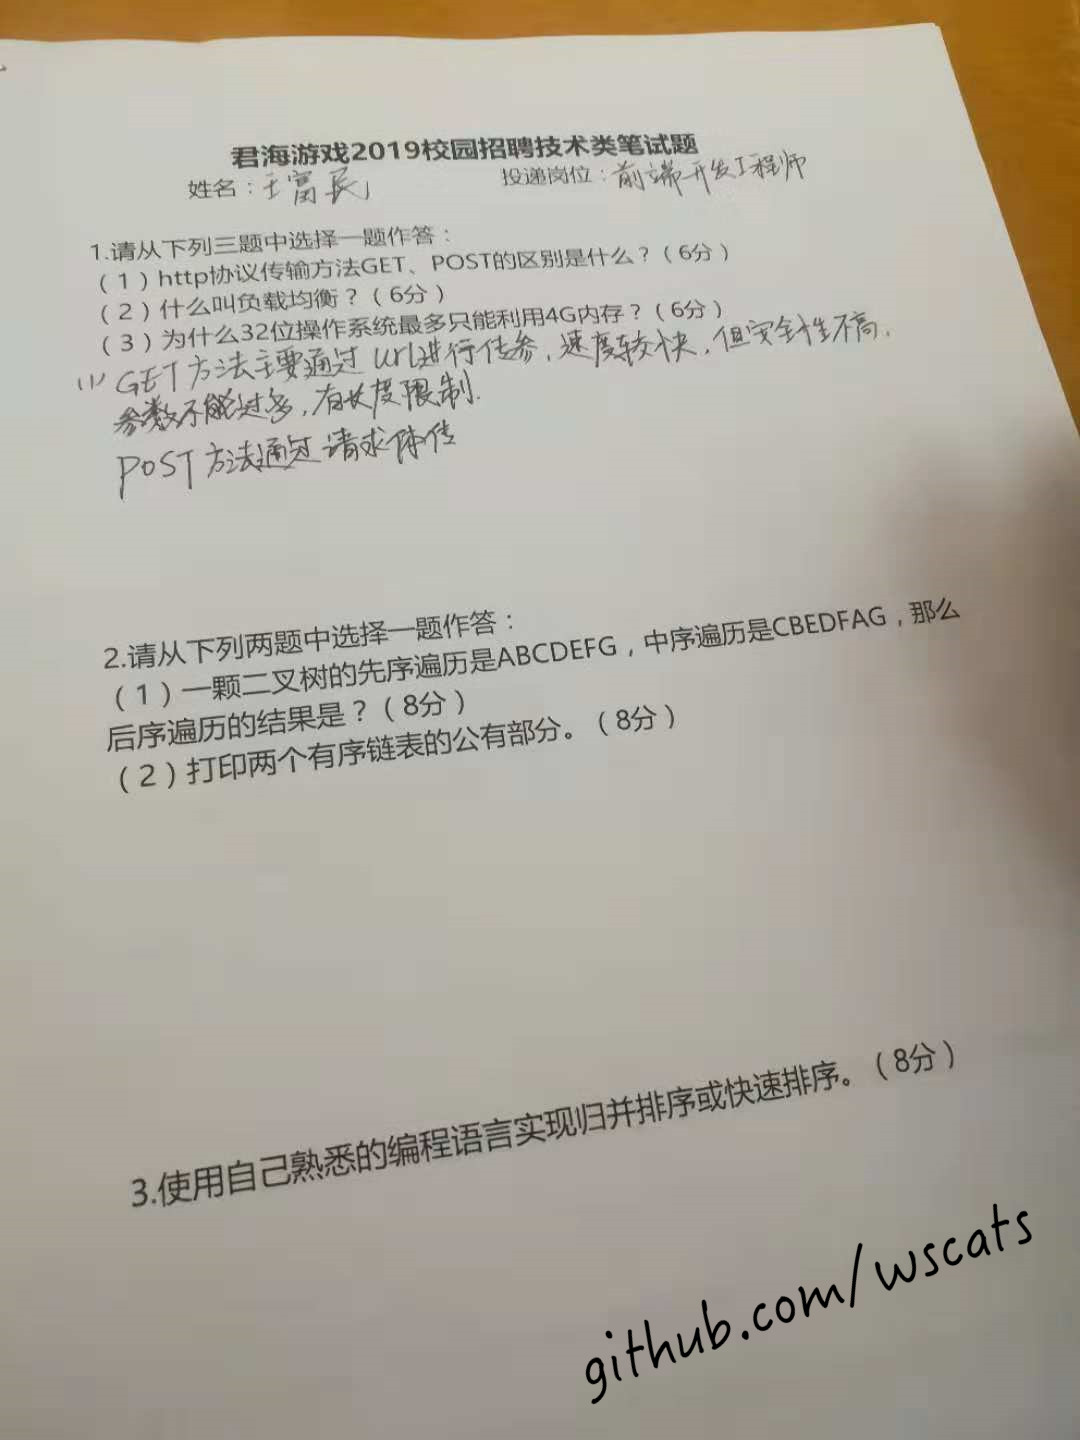 君海游戏2019校园招聘技术类笔试题
姓名：王富民 投递岗位：前端开发工程师
1.请从下列三题中选择一题作答：
（1）http协议传输方法GET、POST的区别是什么？（6分）
（2）什么叫负载均衡？（6分）
（3）为什么32位操作系统最多只能利用4G内存？（6分）
(1) GET方法主要通过url进行传参，速度较快，但安全性不高，
参数不能过多，有长度限制.
POST方法通过请求体传
2.请从下列两题中选择一题作答：
（1）一颗二叉树的先序遍历是ABCDEFG，中序遍历是CBEDFAG，那么
后序遍历的结果是？（8分）
（2）打印两个有序链表的公有部分。（8分）
3.使用自己熟悉的编程语言实现归并排序或快速排序。（8分）
github.com/wscats